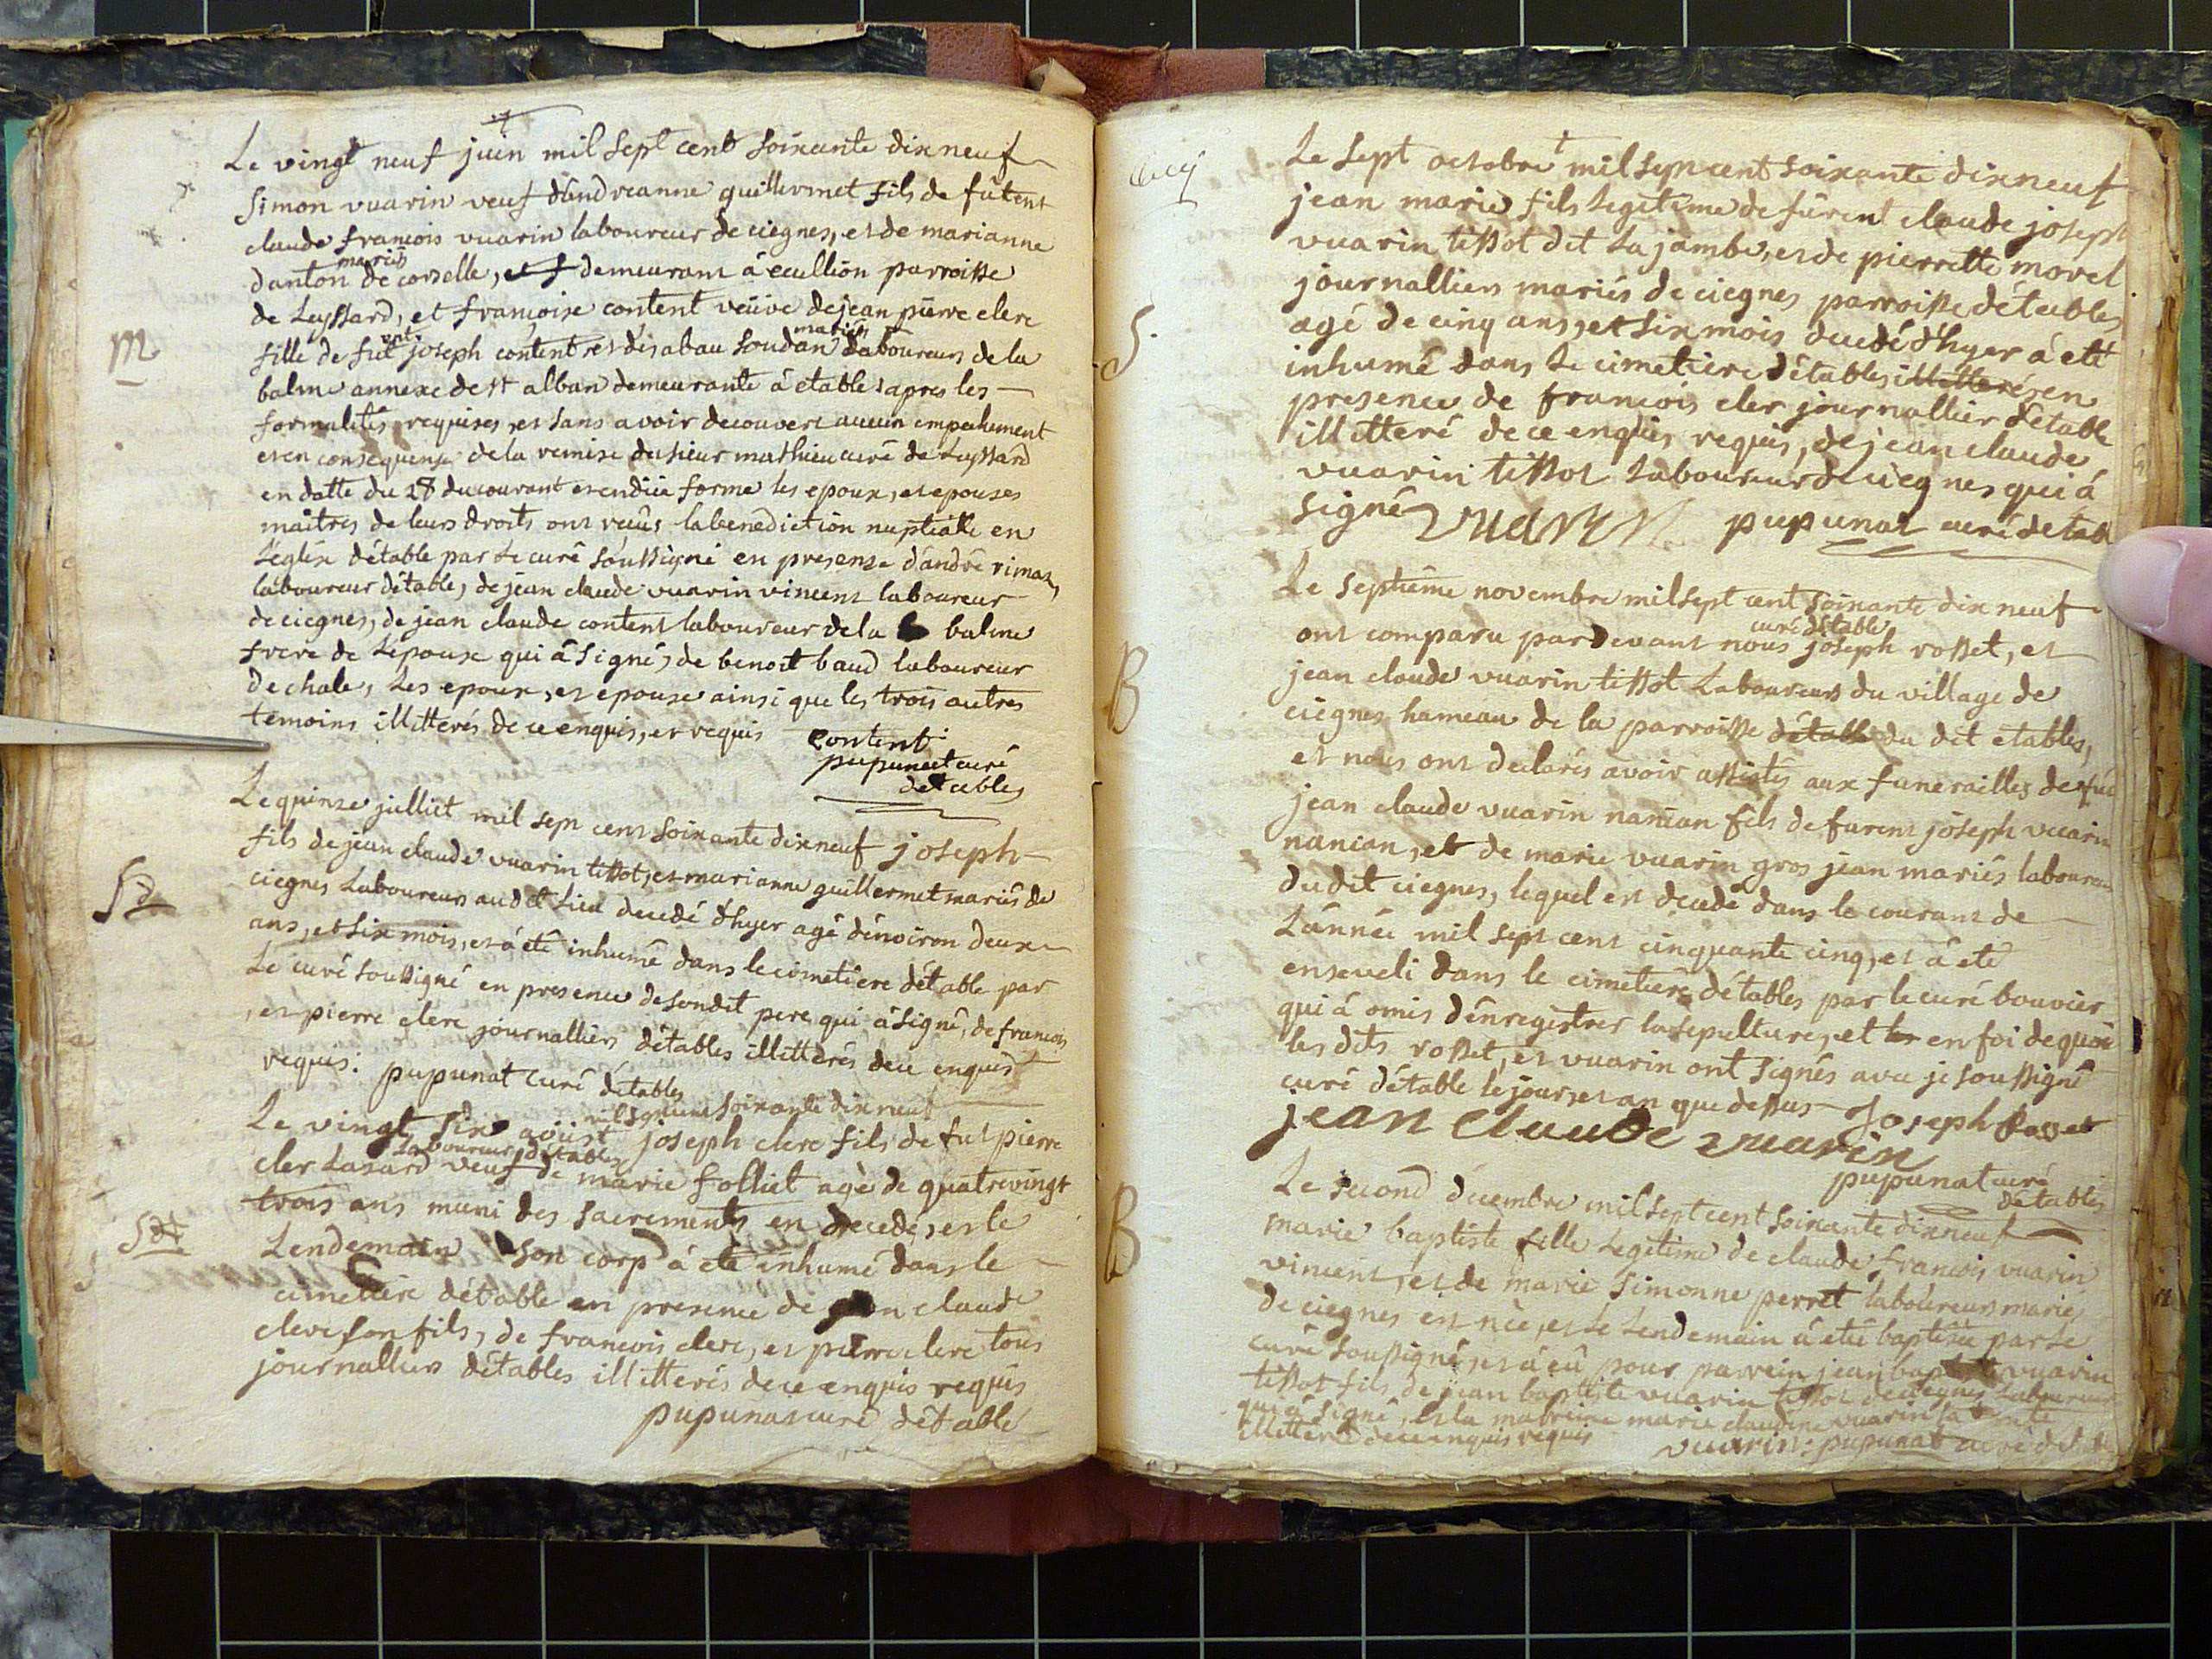 Le vingt neuf juin mil sept cent soixante dix neuf
Simon vuarin veuf d'andreanne guillermet fils de fûtent
claude francois vuarin laboureur de ciegnes, et de marianne
mariés
danton de corselle, demeurant à ecullion parroisse
de Leyssard, et francoise content veûve de jean pierre clerc
ent mariés
fille de fut joseph content et disabau soudan laboureurs de la
M
balme annexe de st alban demeurante à etables apres les
formalités requises, et sans avoir decouvert aucun empechement
et en consequense de la remise du sieur mathieu curé de Leyssard
en datte du 28 du courant et en düe forme les epoux, et epouses
maitres de leurs droits ont reçûs la benediction nuptialle en
L'eglise d'étable par Le curé soussigné en presense d'andré rimaz,
laboureur d'étable, de jean claude vuarin vincent laboureur
de ciegnes, de jean claude content laboureur de la balme
frere de L'epouse qui à signé, de benoit baud laboureur
de chale, Les epoux, et epouse ainsi que les trois autres
temoins illitterés de ce enquis, et requis content
pupunat curé
detables
Le quinze julliet mil sept cent soixante dix neuf joseph
fils de jean claude vuarin tissot, et marianne guillermet mariés de
Sd
ciegnes Laboureurs audit Lieu decedé d'hyer agé d'environ deux
ans, et six mois, et à eté inhumé dans le cimetiere d'étable par
Le curé soussigné en presence de sondit pere qui à signé, de francois
, et pierre clerc journalliers d'étables illitterés de ce enquis
requis: pupunat curé d'étables
mil sept cent soixante dix neuf
Le vingt six aoüst joseph clerc fils de fut pierre
Laboureur d'étables
cler Lazard veuf de marie folliet agé de quatrevingt
trois ans muni des sacrements en decedé, et le
Lendemain son corp à eté inhumé dans le
cimetiere d'étable en presence de jean claude
clerc son fils, de francois clerc, et pierre clerc tous
journalliers d'étables illitterés de ce enquis requis
pupunat curé d'étable
Le sept octobre mil sept cent soixante dix neuf
jean marie fils Legetime de fûrent claude joseph
vuarin tissot dit La jambe, et de pierrette morel
journalliers mariés de ciegnes parroisse d'étables
S.
agé de cinq ans, et six mois decedé d'hyer à eté
inhumé dans Le cimetiere d'étables illitterés en
presence de francois cler journallier d'étable
illitteré de ce enquis requis, de jean claude
vuarin tissot Laboureur de ciegnes qui à
signé vuarin pupunat curé detab
Le septiéme novembre mil sept cent soixante dix neuf
curé d'étable
ont comparu par devant nous joseph rosset, et
B
jean claude vuarin tissot Laboureurs du village de
ciegnes hameau de la parroisse d'étable du dit etables,
et nous ont declarés avoir assistés aux funerailles de fut
jean claude vuarin nanian fils de furent joseph vuarin
nanian, et de marie vuarin gros jean mariés laboureurs
dudit ciegnes, lequel est decedé dans le courant de
L'année mil sept cent cinquante cinq, et à eté
enseveli dans le cimetiere d'étables par le curé bouvier
qui à omis d'enregistrer la sepulture, et en foi de quoi
les dits rosset, et vuarin ont signés avec je soussigné
curé d'étable le jour, et an que dessus Joseph Rosset
jean Claude vuarin
pupunat curé
d'étables
Le second decembre mil sept cent soixante dix neuf
B
marie baptiste fille Legetime de claude francois vuarin
vincent, et de marie simonne perret laboureurs mariés
de ciegnes est née, et Le Lendemain à eté baptisée par Le
curé soussigné, et à eû pour parrein jean baptiste vuarin
tissot fils de jean baptiste vuarin tissot de ciegnes Laboureur
qui à signé, et la marreine marie claudine vuarin
illitterée de ce enquis requis vuarin: pupunat curé